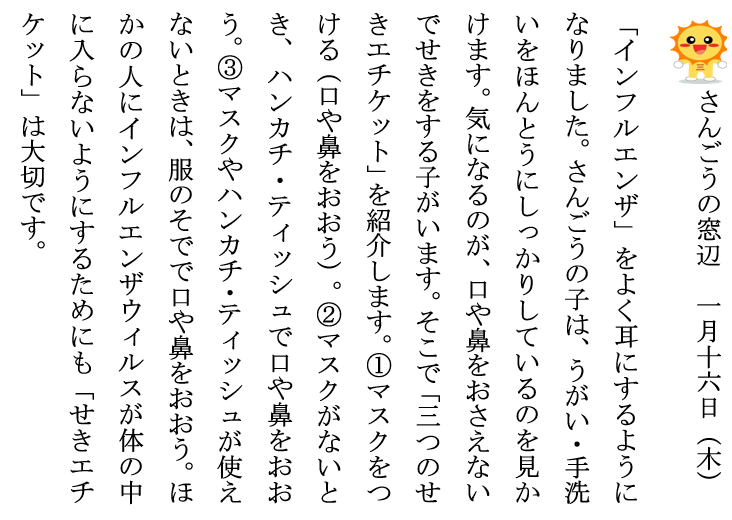 さんごうの窓辺　一月十六日（木）
「インフルエンザ」をよく耳にするように
なりました。さんごうの子は、うがい・手洗
いをほんとうにしっかりしているのを見か
けます。気になるのが、口や鼻をおさえない
でせきをする子がいます。そこで「三つのせ
きエチケット」を紹介します。①マスクをつ
ける（口や鼻をおおう）。②マスクがないと
き、ハンカチ・ティッシュで口や鼻をおお
う。③マスクやハンカチ・ティッシュが使え
ないときは、服のそでで口や鼻をおおう。ほ
かの人にインフルエンザウィルスが体の中
に入らないようにするためにも「せきエチ
ケット」は大切です。